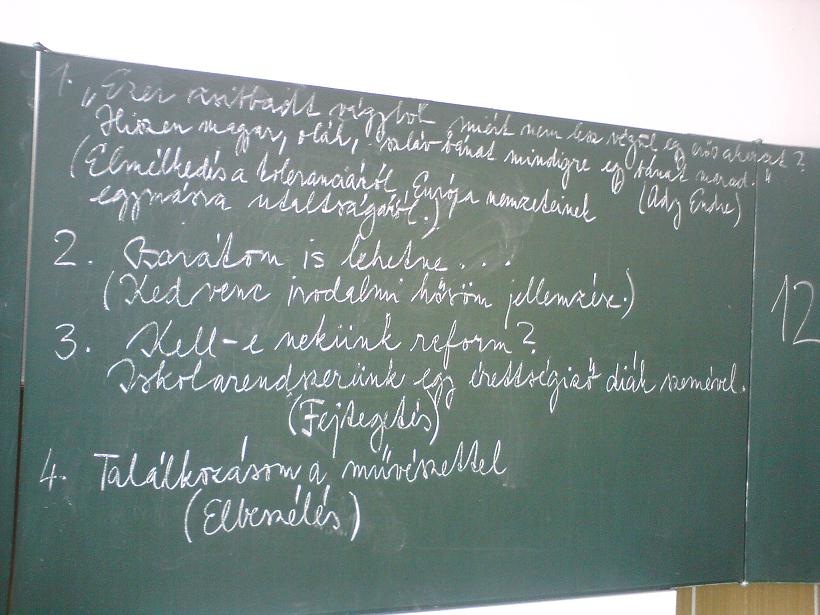 1. „Ezer zsibbadt vágyból miért nem lesz végül egy erős akarat?
Hiszen magyar, oláh, szláv bánat mindigre egy bánat marad."
(Elmélkedés a toleranciáról, Európa nemzeteinek (Ady Endre)
egymásra utaltságáról.)
2. Barátom is lehetne...
(Kedvenc irodalmi hősöm jellemzése.)
3. Kell-e nekünk reform?
Iskolarendszerünk egy érettségiző diák szemével.
(Fejtegetés)
4. Találkozásom a művészettel
(Elbeszélés)
12